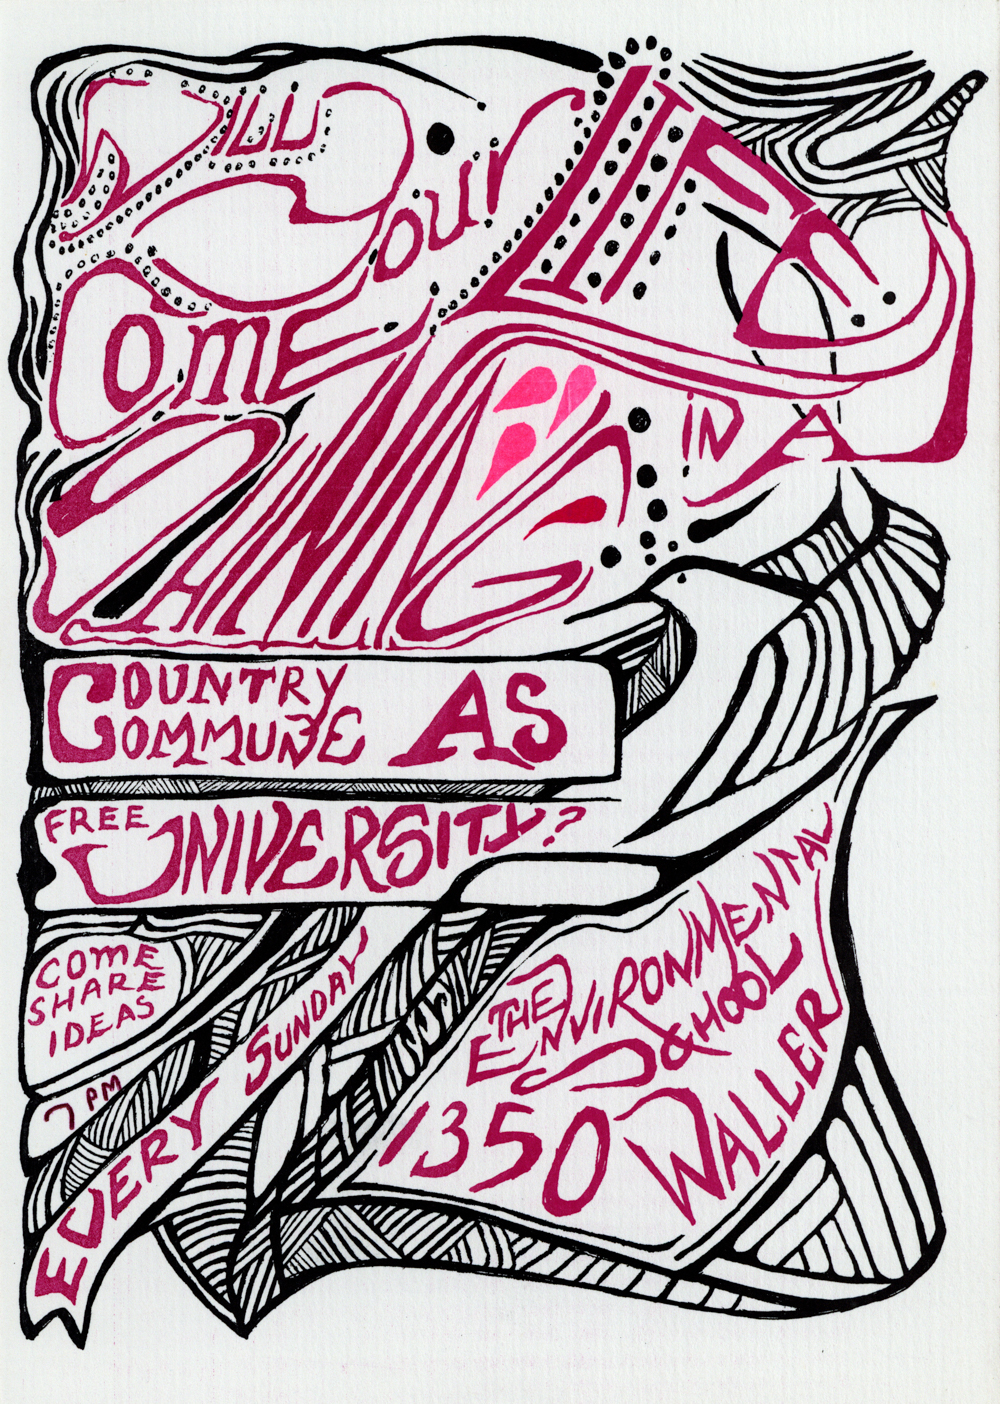 Will your LIFE
Come
SHINING IN A
COUNTRY
COMMUNE AS
FREE UNIVERSITY?
COME
SHARE
IDEAS
7 PM
EVERY SUNDAY
THE
ENVIRONMENTAL
SCHOOL
1350 WALLER